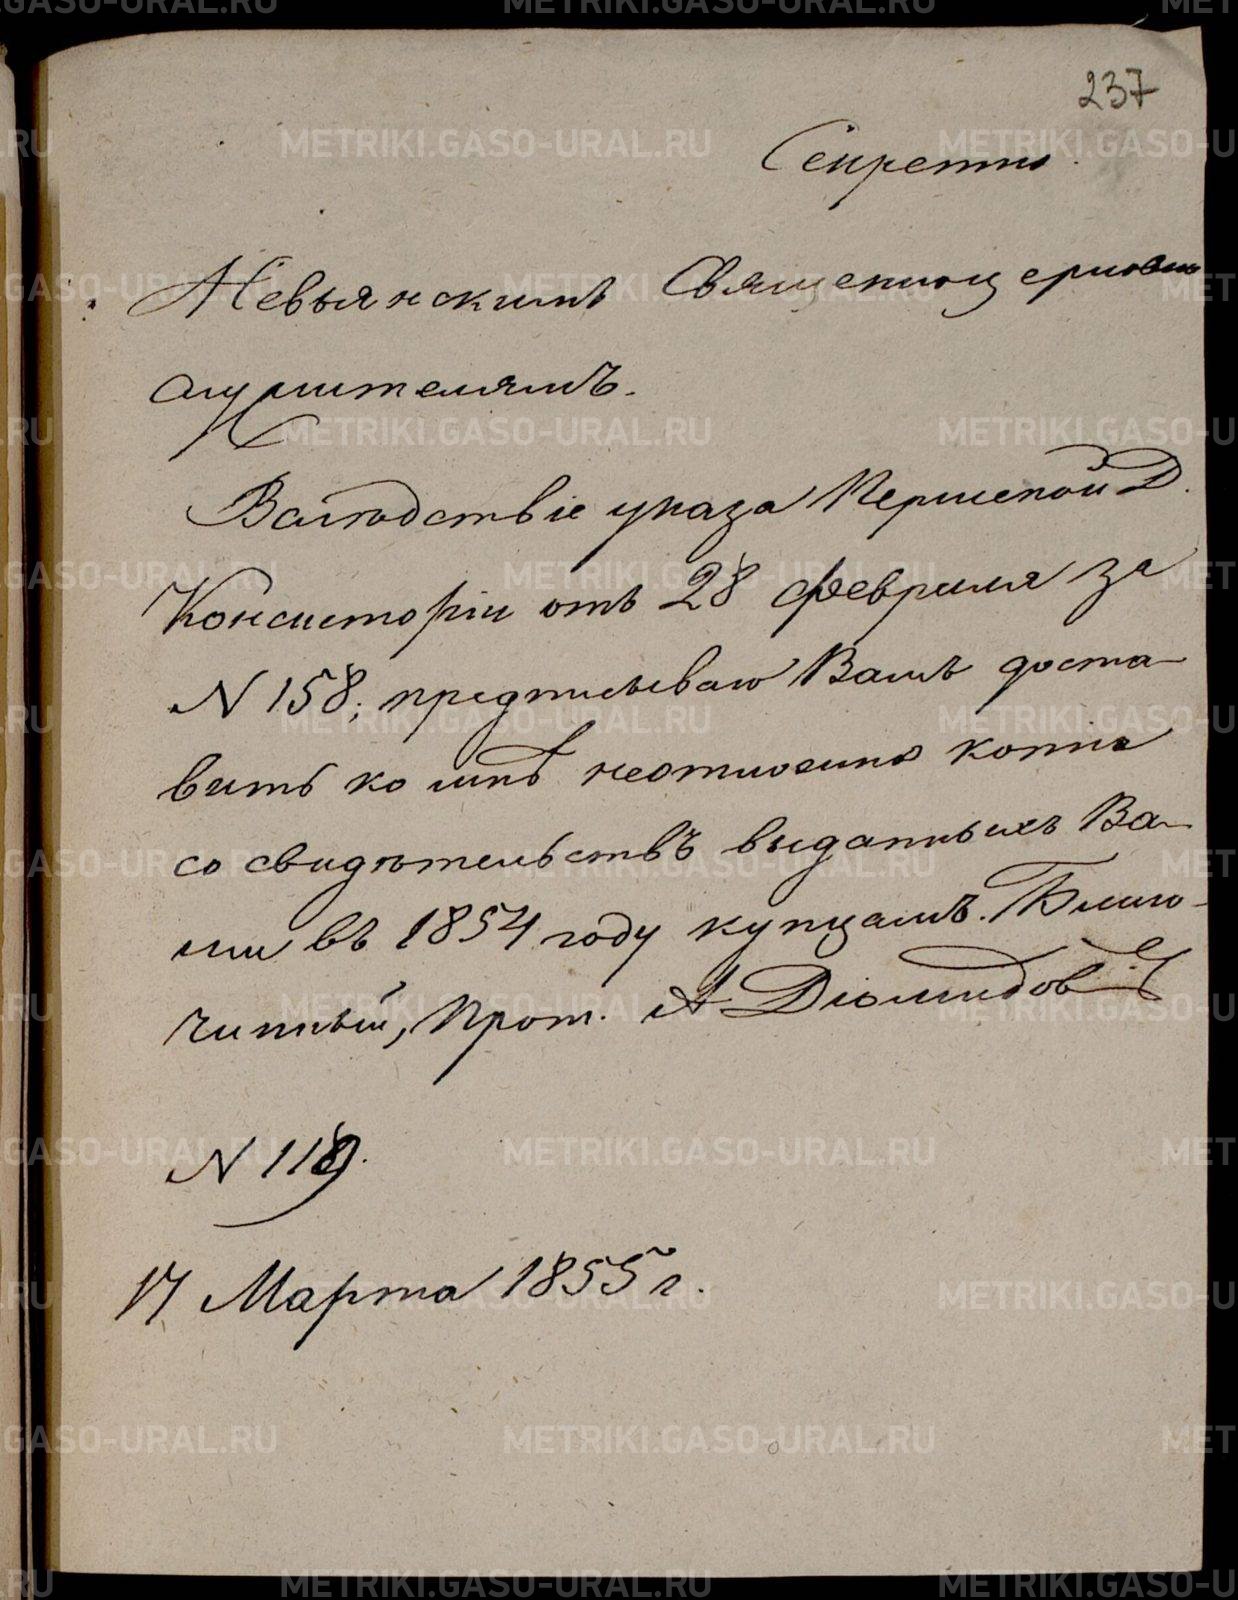 237
Секретно.
Невьянскимъ Священноцерковно
служителямъ.
Вслѣдствіе указа Пермской Д.
Консисторіи отъ 28 февраля за
N 158, предписываю Вамъ доста-
вить ко мнѣ неотложно копіи
со свидѣтельствъ выданныхъ Ва-
ми въ 1854 году купцамъ. Благо-
чинный, Прот. А Діомидовъ
N 119.
17 Марта 1855 г.
METRIKI.GASO-URAL.RU